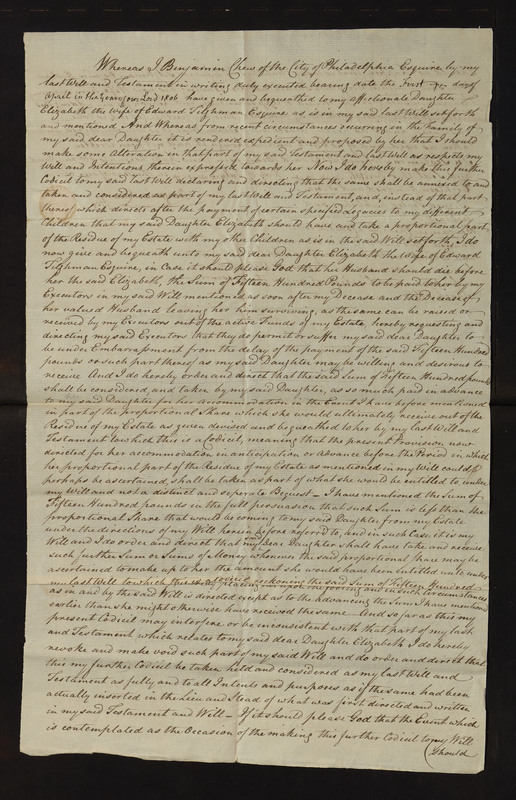 Whereas I Benjamin Chew of the City of Philadelphia Esquire by my
last Will and Testament in writing duly executed bearing date the First day of
April in the year of our Lord 1806 have given and bequeathed to my affectionate Daughter
Elizabeth the wife of Edward Tilghman Esquire as is in my said last Will set forth
and mentioned And Whereas from recent circumstances occurring in the Family of
my said dear Daughter it is rendered expedient and proposed by her that I should
make some Alteration in that part of my said Testament and last Will as respects my
Will and Intentions therein expressed towards her Now I do hereby make this further
Codicil to my said last Will declaring and directing that the same shall be annexed to and
taken and considered as part of my last Will and Testament, and, instead of that part
thereof which directs after the payment of certain specified Legacies to my different
Children that my said Daughter Elizabeth should have and take a proportional part
of the Residue of my Estate with my other Children as is in the said Will set forth, I do
now give and bequeath unto my said dear Daughter Elizabeth the wife of Edward
Tilghman Esquire, in Case it should please God that her Husband should die before
her the said Elizabeth, the Sum of Fifteen Hundred Pounds to be paid to her by my
Executors in my said Will mentioned as soon after my Decease and the Decease of
her valued Husband leaving her him surviving, as the same can be raised or
received by my Executors out of the active Funds of my Estate, hereby requesting and
directing my said Executors that they do permit or suffer my said dear Daughter to
be under Embarrassment from the delay of the payment of the said Fifteen Hundred
pounds or such part thereof as my said Daughter may be willing and desirous to
receive And I do hereby order and direct that the said Sum of Fifteen Hundred pounds
shall be considered, and taken by my said Daughter, as so much paid in advance
to my said Daughter for her accommodation in the Event I have before mentioned
in part of the proportional Share which she would ultimately receive out of the
Residue of my Estate as given devised and bequeathed to her by my last Will and
Testament to which this is a Codicil, meaning that the present Provision now
directed for her accommodation in anticipation or advance before the Period in which
her proportional part of the Residue of my Estate as mentioned in my Will could
perhaps be ascertained, shall be taken as part of what she would be entitled to under
my Will and not a distinct and seperate Bequest — I have mentioned the Sum of
Fifteen Hundred pounds in the full persuasion that such Sum is less than the
proportional Share that would be coming to my said Daughter from my Estate
under the directions of my Will herein before referred to, and in such Case it is my
Will and I do order and direct that my said Dear Daughter shall have take and receive
such further Sum or Sums of Money whenever the said proportional share may be
ascertained to make up to her the amount she would have been entitled unto under
my last Will to which this is a Codicil reckoning the said Sum of Fifteen Hundred
in such Circumstances
as in and by the said Will is directed except as to the advancing the Sum I have mentioned
earlier than she might otherwise have received the same — And so far as this my
present Codicil may interfere or be inconsistent with that part of my last
and Testament which relates to my said dear Daughter Elizabeth I do hereby
revoke and make void such part of my said Will and do order and direct that
this my further Codicil be taken held and considered as my last Will and
Testament as fully and to all Intents and purposes as if the same had been
actually inserted in the Lieu and Stead of what was first directed and written
in my said Testament and Will — If it should please God that the Event which
is contemplated as the Occasion of the making this further Codicil to my Will
should